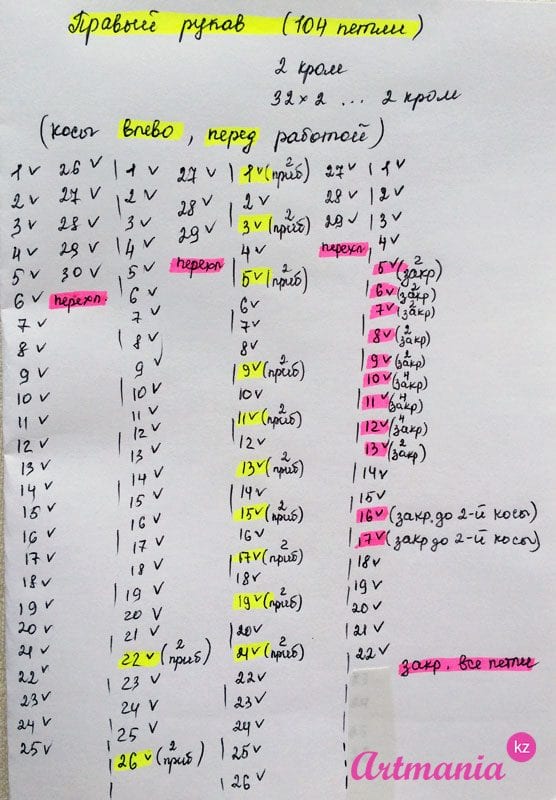 Правый рукав (104 петли)
2 кром
32 × 2 ... 2 кром
(косы влево, перед работой)
1 ✓
2 ✓
3 ✓
4 ✓
5 ✓
6 ✓
7 ✓
8 ✓
9 ✓
10 ✓
11 ✓
12 ✓
13 ✓
14 ✓
15 ✓
16 ✓
17 ✓
18 ✓
19 ✓
20 ✓
21 ✓
22 ✓
23 ✓
24 ✓
25 ✓
26 ✓
27 ✓
28 ✓
29 ✓
30 ✓
перехл.
1 ✓
2 ✓
3 ✓
4 ✓
5 ✓
6 ✓
7 ✓
8 ✓
9 ✓
10 ✓
11 ✓
12 ✓
13 ✓
14 ✓
15 ✓
16 ✓
17 ✓
18 ✓
19 ✓
20 ✓
21 ✓
22 ✓ (2 приб)
23 ✓
24 ✓
25 ✓
26 ✓ (2 приб)
27 ✓
28 ✓
29 ✓
перехл
1 ✓ (2 приб)
2 ✓
3 ✓ (2 приб)
4 ✓
5 ✓ (2 приб)
6 ✓
7 ✓
8 ✓
9 ✓ (2 приб)
10 ✓
11 ✓ (2 приб)
12 ✓
13 ✓ (2 приб)
14 ✓
15 ✓ (2 приб)
16 ✓
17 ✓ (2 приб)
18 ✓
19 ✓ (2 приб)
20 ✓
21 ✓ (2 приб)
22 ✓
23 ✓
24 ✓
25 ✓
26 ✓
27 ✓
28 ✓
29 ✓
перехл
1 ✓
2 ✓
3 ✓
4 ✓
5 ✓ (2 закр)
6 ✓ (2 закр)
7 ✓ (2 закр)
8 ✓ (2 закр)
9 ✓ (2 закр)
10 ✓ (4 закр)
11 ✓ (4 закр)
12 ✓ (4 закр)
13 ✓ (2 закр)
14 ✓
15 ✓
16 ✓ (закр. до 2-й косы)
17 ✓ (закр до 2-й косы)
18 ✓
19 ✓
20 ✓
21 ✓
22 ✓
закр. все петли
Artmania kz